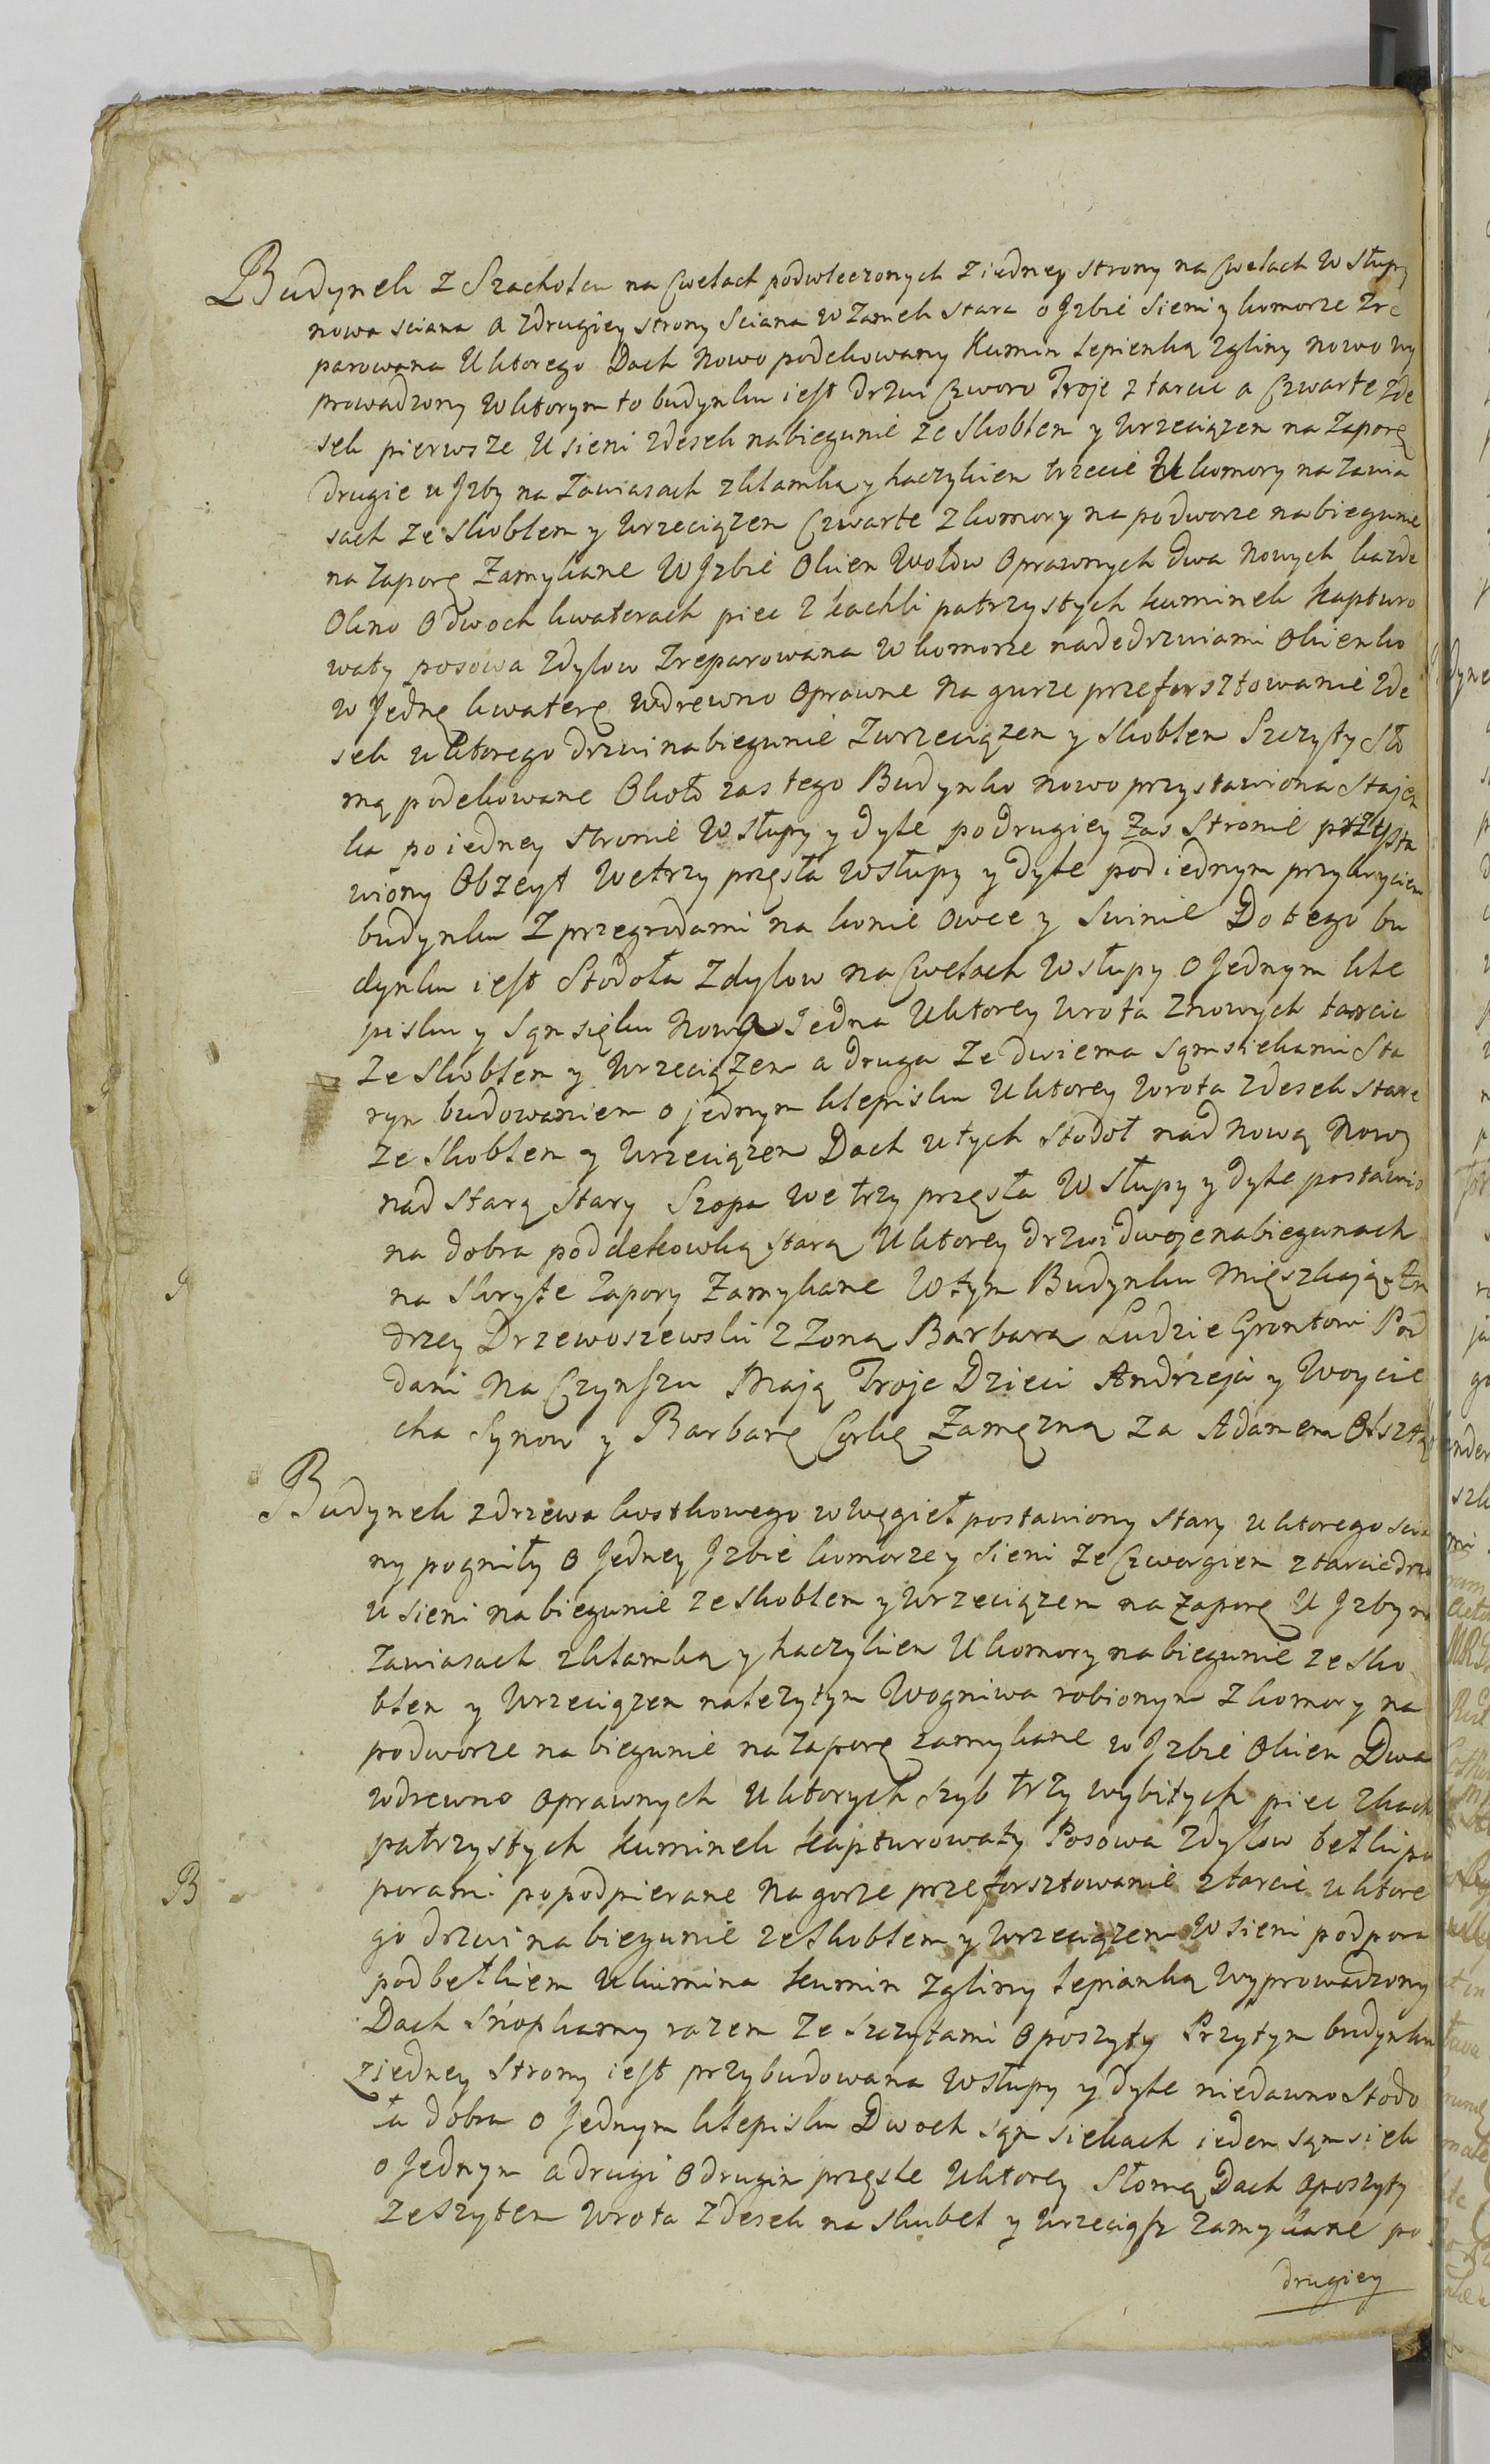 Budynek z Szachulcu na Cwelach podwleczonych z iedney strony na Cwelach w słupy
nowa sciana a z drugiey strony sciana w Zamek stara o Jzbie sieni y komorze zre
parowana U ktorego Dach nowo podekowany Kumin lepienką z gliny nowo wy
prowadzony w ktorym to budynku iest drzwi Czworo Troje z tarcic a Czwarte z de
sek pierwsze U sieni z desek na biegunie ze skoblem y wrzeciązem na Zaporę
drugie u Jzby na Zawiasach z klamką y haczykiem trzecie U komory na zawia
sach ze skoblem y wrzeciązem Czwarte z komory na podworze na biegunie
na zaporę zamykane W Jzbie Okien w ołow oprawnych dwa nowych każde
Okno o dwoch kwaterach piec z kachli patrzystych kuminek kapturo
waty posowa z dylow zreparowana w komorze nade drzwiami okienko
w Jednę kwaterę w drewno oprawne na gurze przeforsztowanie z de
sek u ktorego drzwi na biegunie z wrzeciązem y skoblem Szczyty sło
mą podekowane Około zas tego Budynku nowo przystawiona Stajen
ka po iedney stronie w słupy y dyle po drugiey zas stronie przysta
wiony Obzeyt we trzy przęsła w słupy y dyle pod iednym przykryciem
budynku z przegrodami na konie owce y swinie Do tego bu
dynku iest Stodoła z dylow na Cwelach w słupy o Jednym kle
pisku y sąmsięku nowa Jedna U ktorey wrota z nowych tarcic
ze skoblem y wrzeciązem a druga ze dwiema sąmsiekami sta
rym budowaniem o jednym klepisku U ktorey wrota z desek stare
ze skoblem y wrzeciązem Dach u tych stodoł nad nową nowy
nad starą stary Szopa we trzy przęsła w słupy y dyle postawio
na dobra pod dekowką starą U ktorey drzwi dwoje na biegunach
na skryte zapory zamykane w tym Budynku mięszkają An
drzey Drzewoszewski z Zoną Barbarą Ludzie Grontowi Pod
dani na Czynszu Mają Troje Dzieci Andrzeja y Woycie
cha Synow y Barbarę Corkę Zamęzną za Adamem
Budynek z drzewa kostkowego w węgieł postawiony stary u ktorego scia
ny pogniły o Jedney Jzbie komorze y sieni ze Czworgiem z tarcic drzwi
u sieni na biegunie ze skoblem y wrzeciązem na zaporę U Jzby na
zawiasach z klamką y haczykiem U komory na biegunie ze sko
blem y wrzeciązem nalezytym w ogniwa robionym z komory na
podworze na biegunie na zaporę zamykane w Jzbie Okien Dwa
w drewno oprawnych u ktorych szyb trzy wybitych piec z kach
patrzystych kuminek kapturowaty Posowa z dylow belki po
porami popodpierane na gorze przeforsztowanie z tarcic u ktore
go drzwi na biegunie ze skoblem y wrzeciązem W sieni podpora
pod belkiem U kumina kumin z gliny lepianką wyprowadzony
Dach snopkamy razem ze szczytami oposzyty Przy tym budynku
z iedney strony iest przybudowana w słupy y dyle niedawno stodo
ła dobra o Jednym klepisku Dwoch sąmsiekach ieden sąmsiek
o Jednym a drugi o drugim przęsle U ktorey Słomą Dach oposzyty
ze szytem wrota z desek na skubel y wrzeciąsz zamykane po
drugiey
9
B